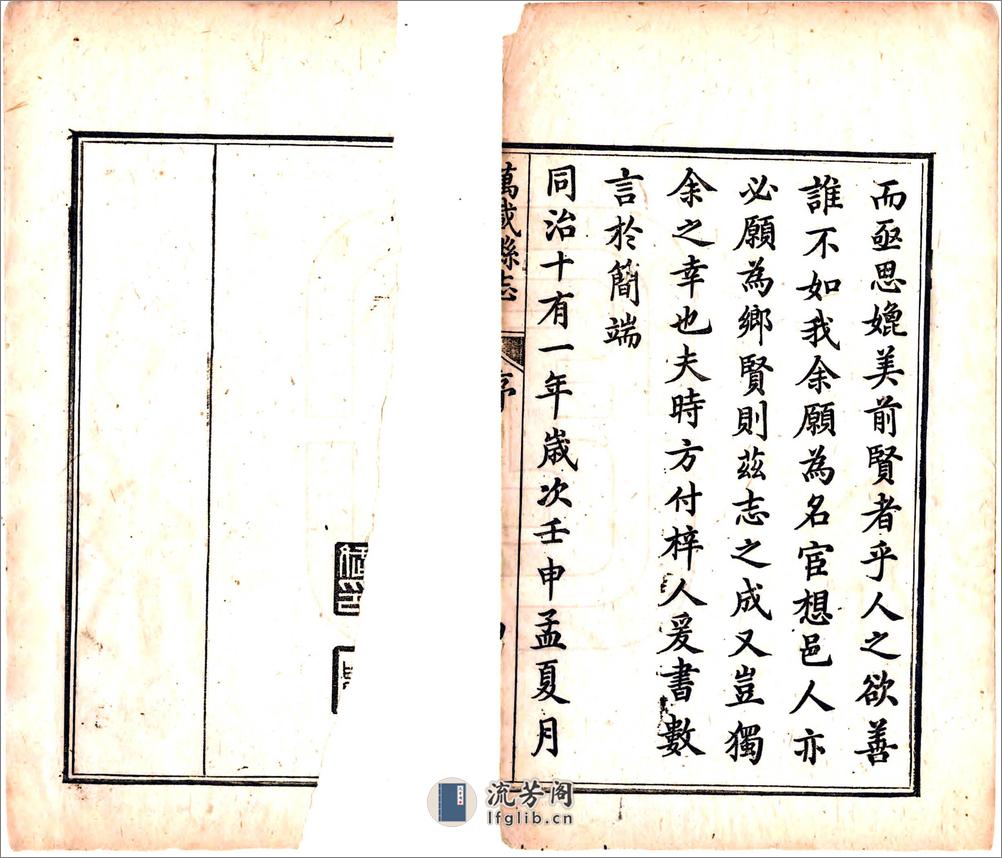 而亟思媲美前賢者乎人之欲善
誰不如我余願為名宦想邑人亦
必願為鄉賢則茲志之成又豈獨
余之幸也夫時方付梓人爰書數
言於簡端
同治十有一年歲次壬申孟夏月
萬載縣志
序
流芳阁
lfglib.cn